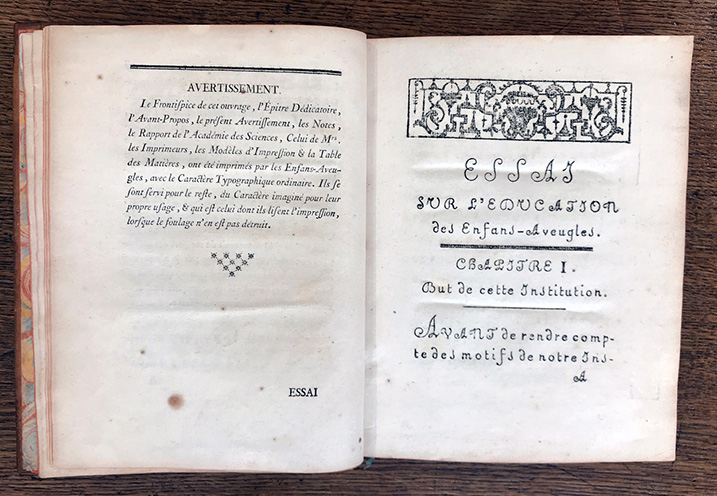 AVERTISSEMENT.
Le Frontiſpice de cet ouvrage, l'Epitre Dédicatoire,
l'Avant-Propos, le préſent Avertiſſement, les Notes,
le Rapport de l'Académie des Sciences, Celui de Mrs.
les Imprimeurs, les Modèles d'Impreſſion & la Table
des Matières, ont été imprimés par les Enfans-Aveu-
gles, avec le Caractère Typographique ordinaire. Ils ſe
ſont ſervi pour le reſte, du Caractère imaginé pour leur
propre uſage, & qui eſt celui dont ils liſent l'impreſſion,
lorſque le foulage n'en eſt pas détruit.
ESSAI
ESSAI
SUR L'EDUCATION
des Enfans-Aveugles.
CHAPITRE I.
But de cette Institution.
AVANT de rendre comp-
te des motifs de notre Ins-
A